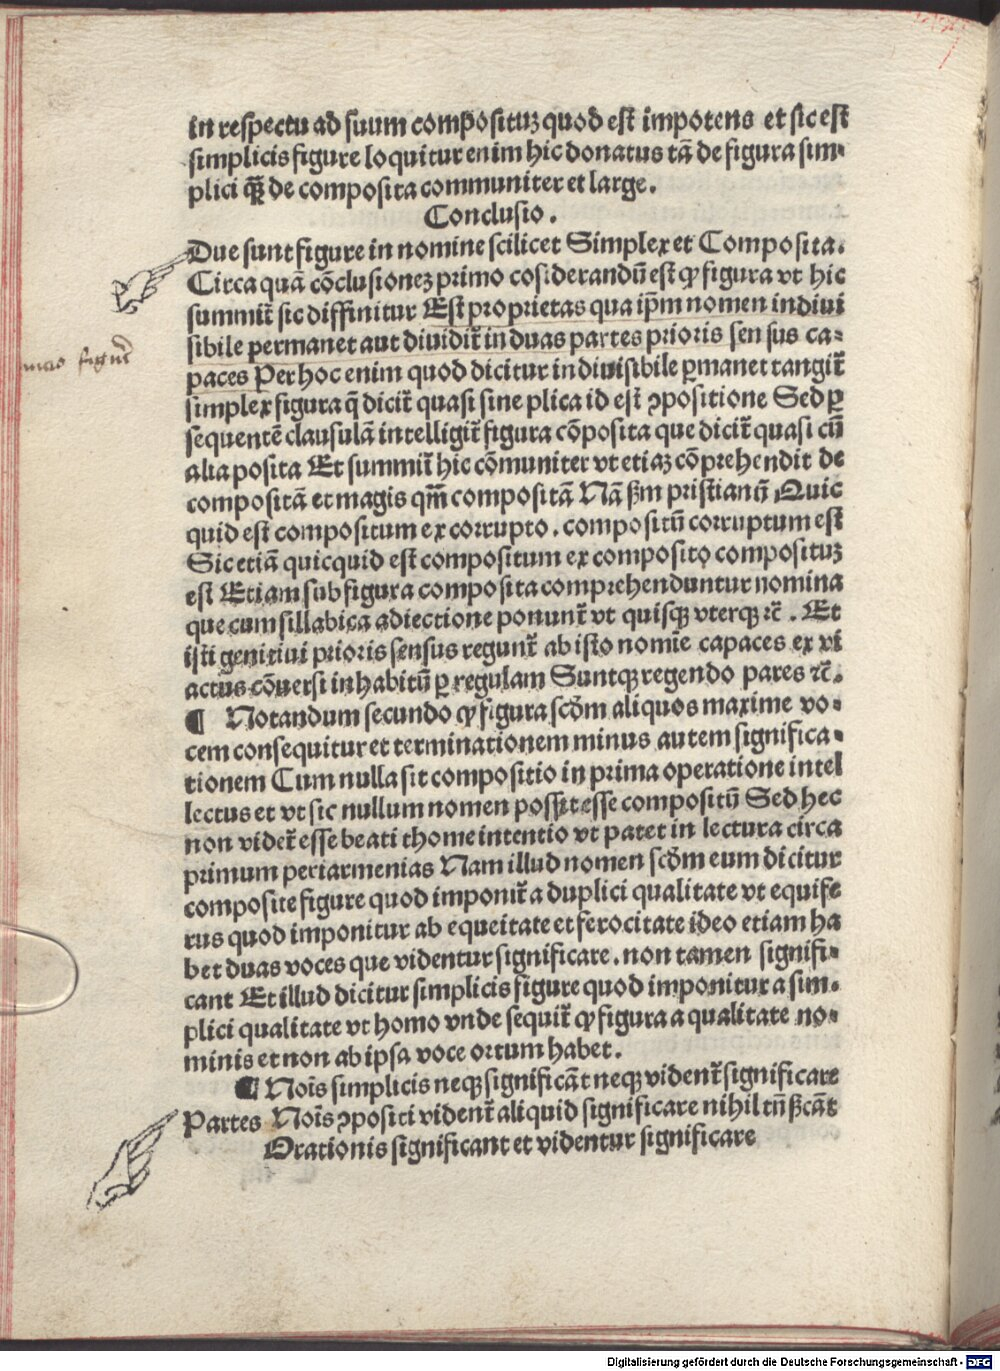 in respectu ad suum composituʒ quod est impotens et sic est
simplicis figure loquitur enim hic donatus tā de figura sim-
plici qȝ̄ de composita communiter et large.
Conclusio.
Due sunt figure in nomine scilicet Simplex et Composita.
Circa quā cōclusioneʒ primo cōsiderandū est ꝙ figura vt hic
summit̄ sic diffinitur Est proprietas qua ip̄m nomen indiui
sibile permanet aut diuidit̄ in duas partes prioris sensus ca-
paces Per hoc enim quod dicitur indiuisibile ꝑmanet tangit̄
simplex figura q̄ dicit̄ quasi sine plica id est ↄpositione Sed ꝑ
sequentē clausulā intelligit̄ figura cōposita que dicit̄ quasi cū
alia posita Et summit̄ hic cōmuniter vt etiaʒ cōprehendit de
compositā et magis qm̄ compositā Nā ẜm pristianū Quic
quid est compositum ex corrupto. compositū corruptum est
Sic etiā quicquid est compositum ex composito composituʒ
est Etiam sub figura composita comprehenduntur nomina
que cum sillabica adiectione ponunt̄ vt quisqʒ vterqʒ ⁊c̄. Et
isti genitiui prioris sensus regunt̄ ab isto nomīe capaces ex vi
actus cōuersi in habitū ꝑ regulam Suntqʒ regendo pares ⁊c̄.
¶ Notandum secundo ꝙ figura scd̄m aliquos maxime vo-
cem consequitur et terminationem minus autem significa-
tionem Cum nulla sit compositio in prima operatione intel
lectus et vt sic nullum nomen posset esse compositū Sed hec
non videt̄ esse beati thome intentio vt patet in lectura circa
primum periarmenias Nam illud nomen scd̄m eum dicitur
composite figure quod imponit̄ a duplici qualitate vt equife
rus quod imponitur ab equeitate et ferocitate ideo etiam ha
bet duas voces que videntur significare. non tamen signifi-
cant Et illud dicitur simplicis figure quod imponitur a sim-
plici qualitate vt homo vnde sequit̄ ꝙ figura a qualitate no-
minis et non ab ipsa voce ortum habet.
¶ Noīs simplicis neqʒ significāt neqʒ vident̄ significare
Partes Noīs ↄpositi vident̄ aliquid significare nihil tn̄ ẜcāt
Orationis significant et videntur significare
Digitalisierung gefördert durch die Deutsche Forschungsgemeinschaft - DFG